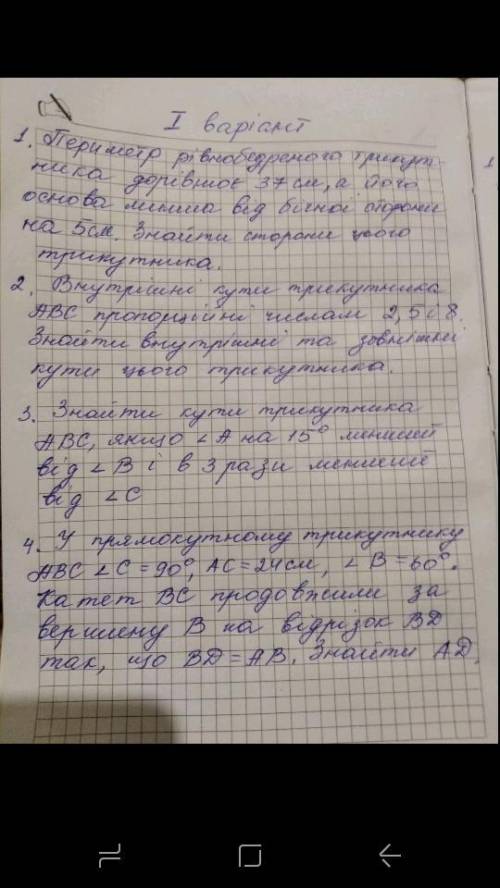 І варіант
1. Периметр рівнобедреного трикут-
ника дорівнює 37 см, а його
основа менша від бічної сторони
на 5см. Знайти сторони цього
трикутника.
2. Внутрішні кути трикутника
АВС пропорційні числам 2, 5 і 8.
Знайти внутрішні та зовнішні
кути цього трикутника.
3. Знайти кути трикутника
АВС, якщо ∠А на 15° менший
від ∠В і в 3 рази менший
від ∠С
4. У прямокутному трикутнику
АВС ∠С = 90°, АС = 24 см, ∠В = 60°.
Катет ВС продовжили за
вершину В на відрізок ВD
так, що ВD = АВ. Знайти АD.
1